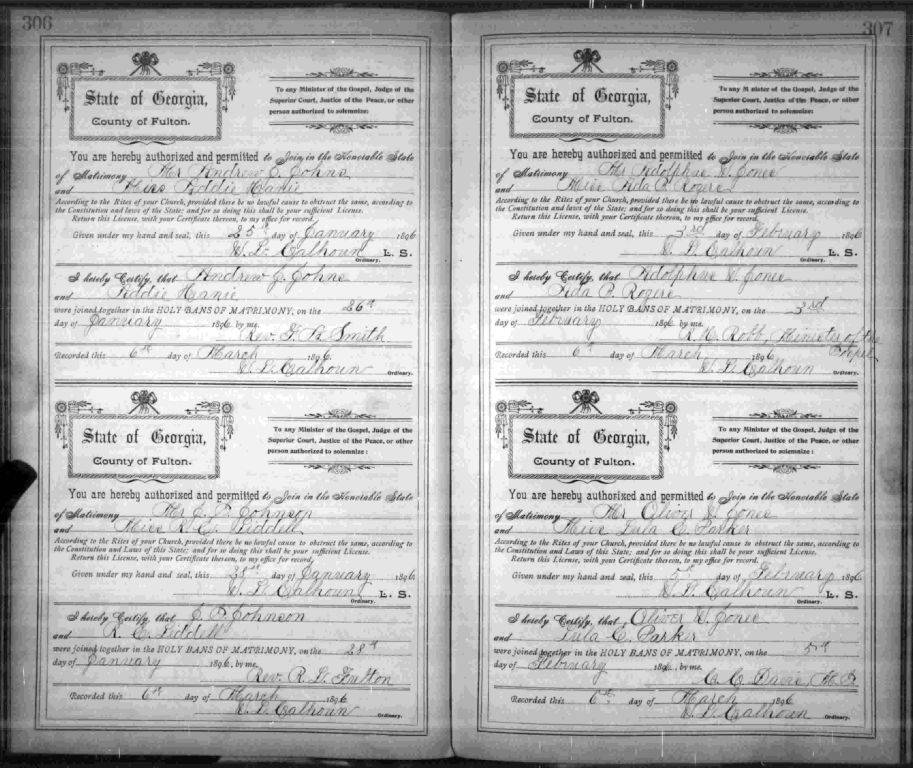 306
State of Georgia,
County of Fulton.
To any Minister of the Gospel, Judge of the
Superior Court, Justice of the Peace, or other
person authorized to solemnize:
You are hereby authorized and permitted to Join in the Honorable State
of Matrimony Mr Andrew J. Johns
and Miss Liddie Hanie
According to the Rites of your Church, provided there be no lawful cause to obstruct the same, according to
the Constitution and laws of this State; and for so doing this shall be your sufficient License.
Return this License, with your Certificate thereon, to my office for record.
Given under my hand and seal, this 25th day of January 1896
W. L. Calhoun L. S.
Ordinary.
I hereby Certify, that Andrew J. Johns
and Liddie Hanie
were joined together in the HOLY BANS OF MATRIMONY, on the 26th
day of January 1896 by me.
Rev. Smith
Recorded this 6th day of March 1896.
W. L. Calhoun
Ordinary.
State of Georgia,
County of Fulton.
To any Minister of the Gospel, Judge of the
Superior Court, Justice of the Peace, or other
person authorized to solemnize:
You are hereby authorized and permitted to Join in the Honorable State
of Matrimony Mr J. P. Johnson
and Miss R. E. Liddell
According to the Rites of your Church, provided there be no lawful cause to obstruct the same, according to
the Constitution and Laws of this State; and for so doing this shall be your sufficient License.
Return this License, with your Certificate thereon, to my office for record.
Given under my hand and seal, this 28th day of January 1896
W. L. Calhoun L. S.
Ordinary.
I hereby Certify, that J. P. Johnson
and R. E. Liddell
were joined together in the HOLY BANS OF MATRIMONY, on the 28th
day of January 1896, by me.
Rev. R. L. Fulton
Recorded this 6th day of March 1896
W. L. Calhoun
Ordinary.
307
State of Georgia,
County of Fulton.
To any Minister of the Gospel, Judge of the
Superior Court, Justice of the Peace, or other
person authorized to solemnize:
You are hereby authorized and permitted to Join in the Honorable State
of Matrimony Mr Adolphus Jones
and Miss Ada P. Rogers
According to the Rites of your Church, provided there be no lawful cause to obstruct the same, according to
the Constitution and laws of this State; and for so doing this shall be your sufficient License.
Return this License, with your Certificate thereon, to my office for record.
Given under my hand and seal, this 3rd day of February 1896
W. L. Calhoun L. S.
Ordinary.
I hereby Certify, that Adolphus Jones
and Ada P. Rogers
were joined together in the HOLY BANS OF MATRIMONY, on the 3rd
day of February 1896 by me.
Robb, Minister of the
Gospel
Recorded this 6th day of March 1896
W. L. Calhoun
Ordinary.
State of Georgia,
County of Fulton.
To any Minister of the Gospel, Judge of the
Superior Court, Justice of the Peace, or other
person authorized to solemnize:
You are hereby authorized and permitted to Join in the Honorable State
of Matrimony Mr Oliver Jones
and Miss Lula E. Parker
According to the Rites of your Church, provided there be no lawful cause to obstruct the same, according to
the Constitution and Laws of this State; and for so doing this shall be your sufficient License.
Return this License, with your Certificate thereon, to my office for record.
Given under my hand and seal, this 5th day of February 1896
W. L. Calhoun L. S.
Ordinary.
I hereby Certify, that Oliver Jones
and Lula E. Parker
were joined together in the HOLY BANS OF MATRIMONY, on the 5th
day of February 1896, by me.
C. C. Davis, M. G.
Recorded this 6th day of March 1896
W. L. Calhoun
Ordinary.